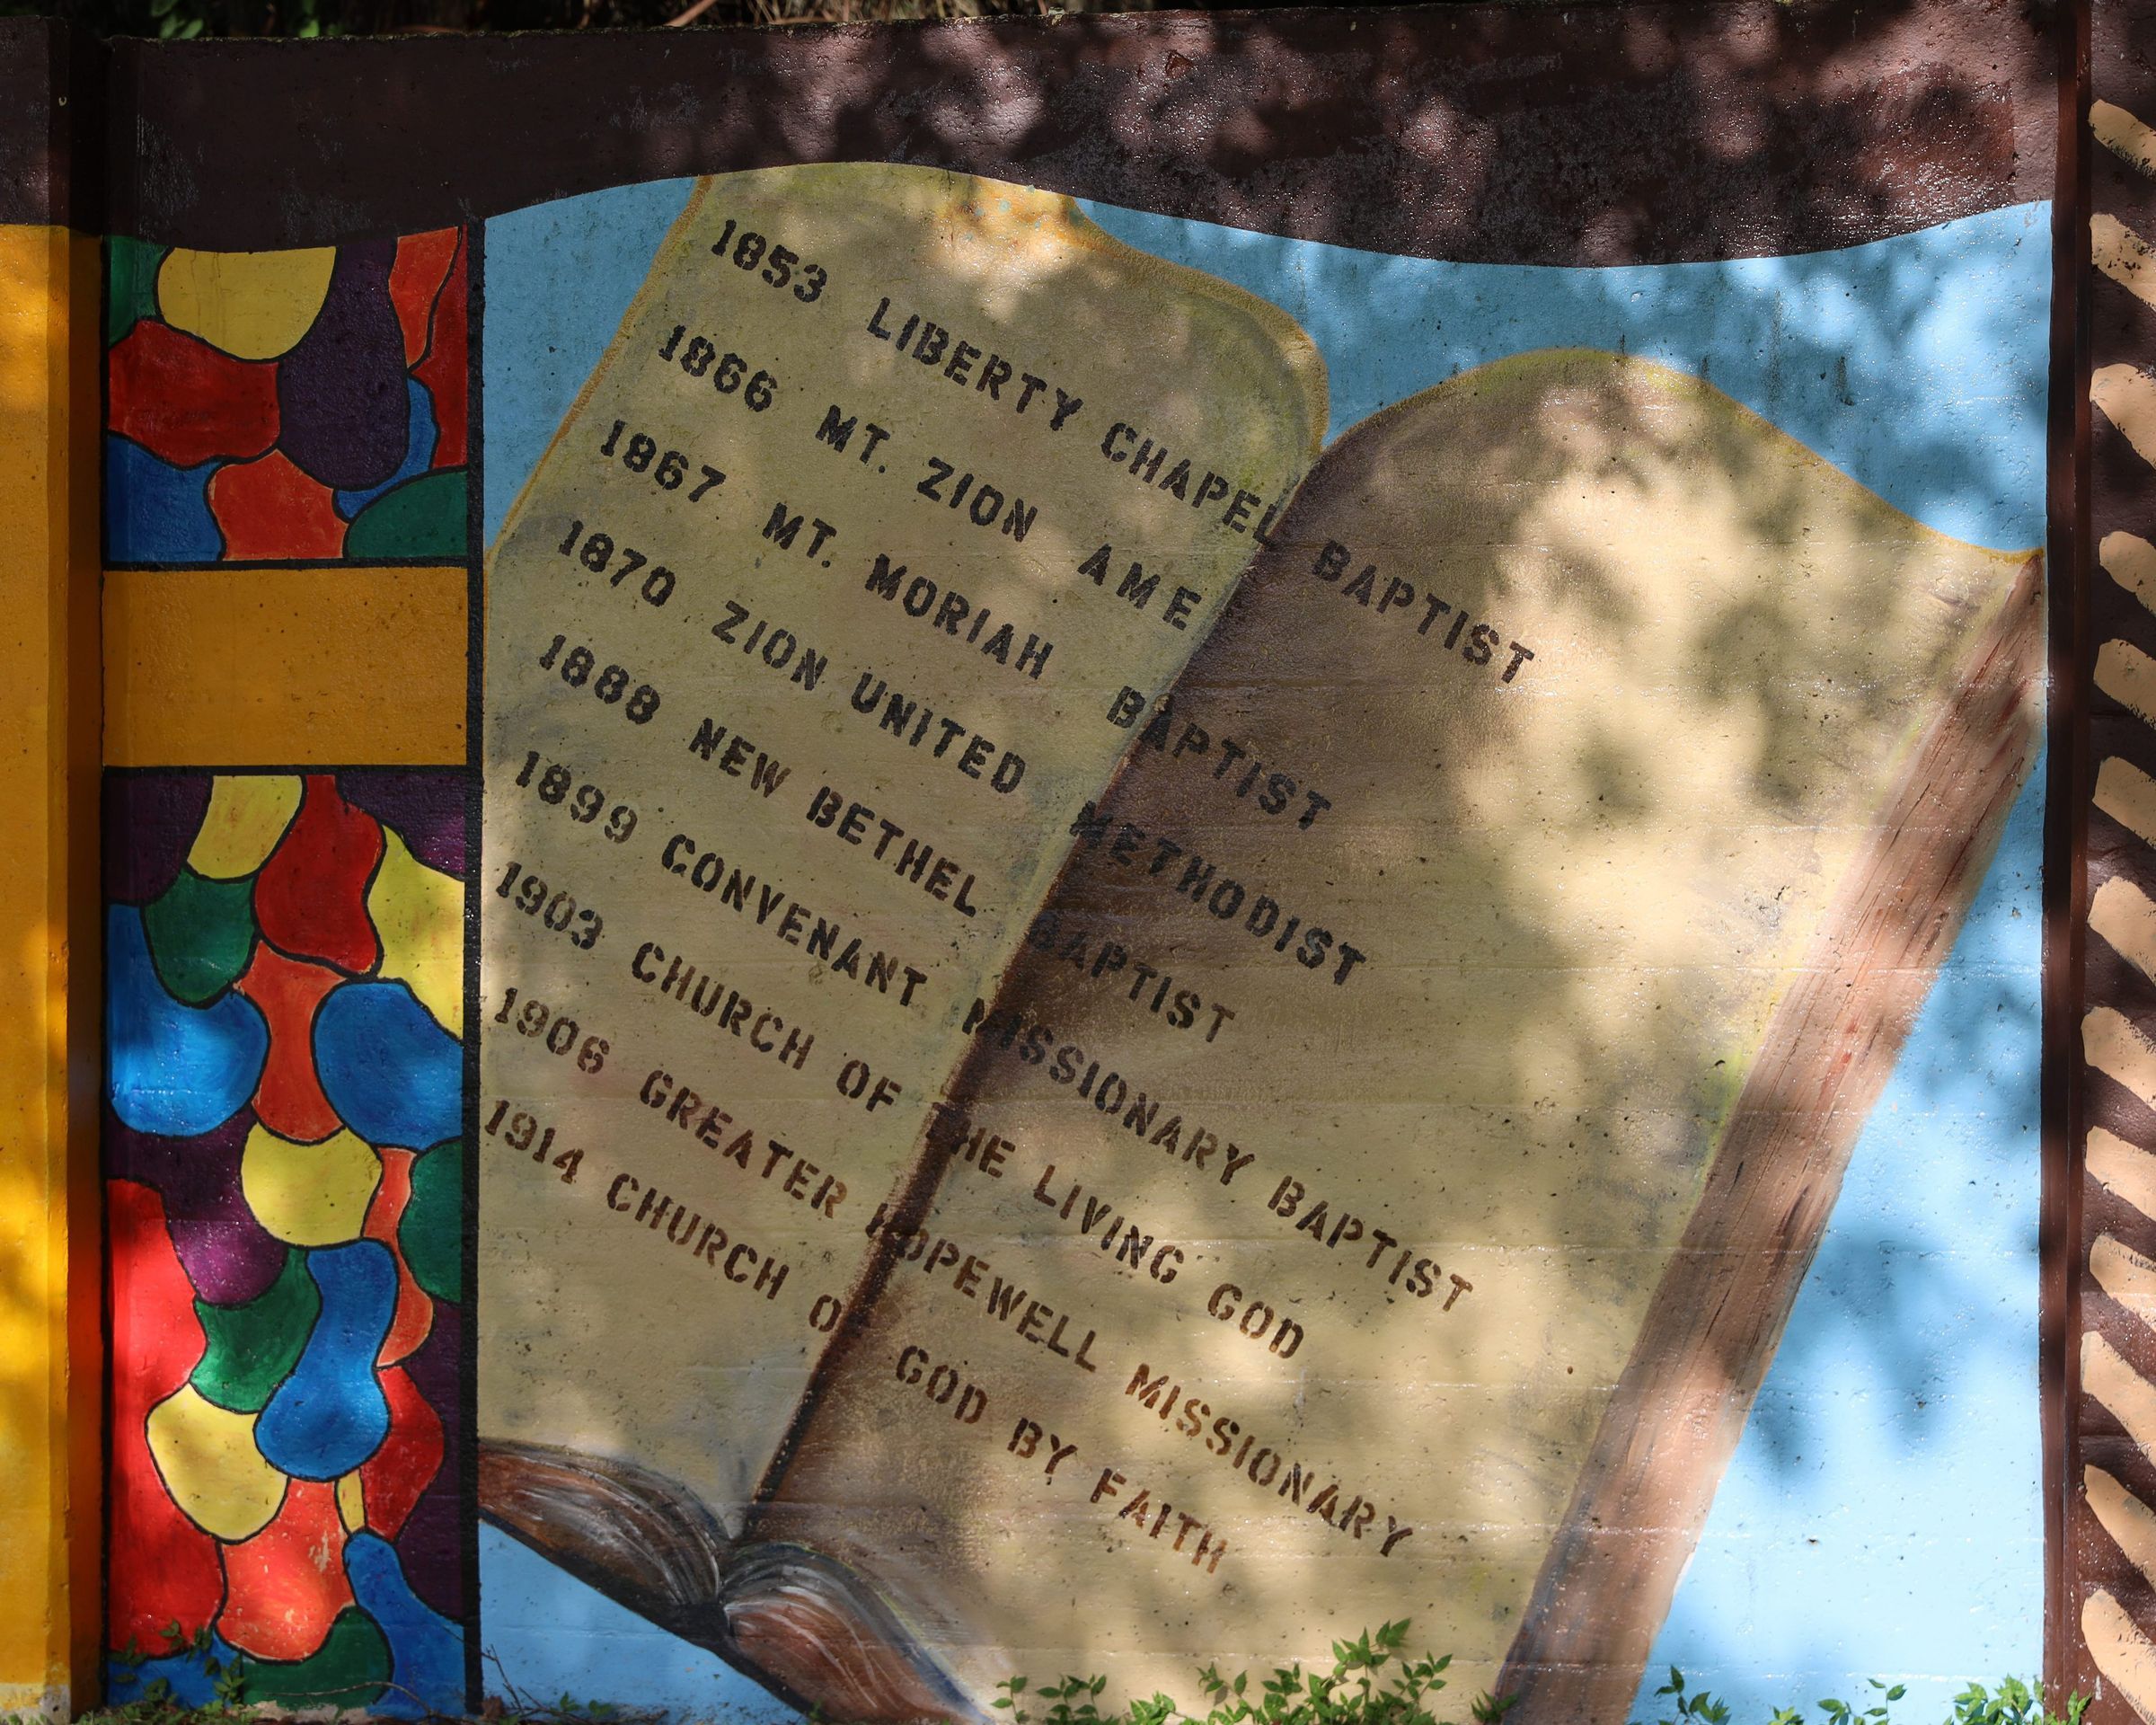 1853 LIBERTY CHAPEL BAPTIST
1866 MT. ZION AME
1867 MT. MORIAH BAPTIST
1870 ZION UNITED METHODIST
1888 NEW BETHEL BAPTIST
1899 CONVENANT MISSIONARY BAPTIST
1903 CHURCH OF THE LIVING GOD
1906 GREATER HOPEWELL MISSIONARY
1914 CHURCH OF GOD BY FAITH